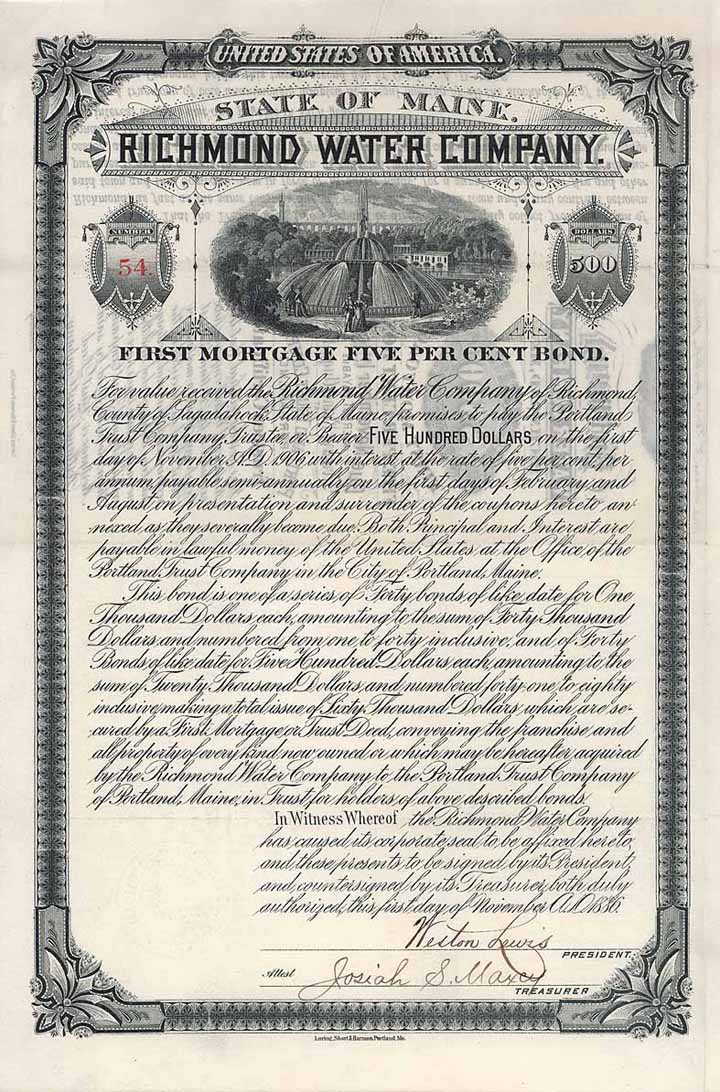 UNITED STATES OF AMERICA.
STATE OF MAINE.
RICHMOND WATER COMPANY.
NUMBER
54.
DOLLARS
500
FIRST MORTGAGE FIVE PER CENT BOND.
For value received the Richmond Water Company of Richmond,
County of Sagadahock, State of Maine, promises to pay the Portland
Trust Company, Trustee, or Bearer FIVE HUNDRED DOLLARS on the first
day of November A.D. 1906 with interest at the rate of five per cent. per
annum, payable semi-annually on the first days of February and
August on presentation and surrender of the coupons hereto an-
nexed as they severally become due. Both Principal and Interest are
payable in lawful money of the United States at the Office of the
Portland Trust Company in the City of Portland, Maine.
This bond is one of a series of Forty bonds of like date for One
Thousand Dollars each, amounting to the sum of Forty Thousand
Dollars and numbered from one to forty inclusive, and of Forty
Bonds of like date for Five Hundred Dollars each, amounting to the
sum of Twenty Thousand Dollars and numbered forty one to eighty
inclusive making a total issue of Sixty Thousand Dollars which are se-
cured by a First Mortgage or Trust Deed, conveying the franchise and
all property of every kind now owned or which may be hereafter acquired
by the Richmond Water Company to the Portland Trust Company
of Portland, Maine, in Trust, for holders of above described bonds.
In Witness Whereof the Richmond Water Company
has caused its corporate seal to be affixed hereto,
and these presents to be signed by its President,
and countersigned by its Treasurer, both duly
authorized, this first day of November A.D. 1886.
Weston Lewis
PRESIDENT.
Attest Josiah S. Maxcy
TREASURER
Loring, Short & Harmon, Portland, Me.